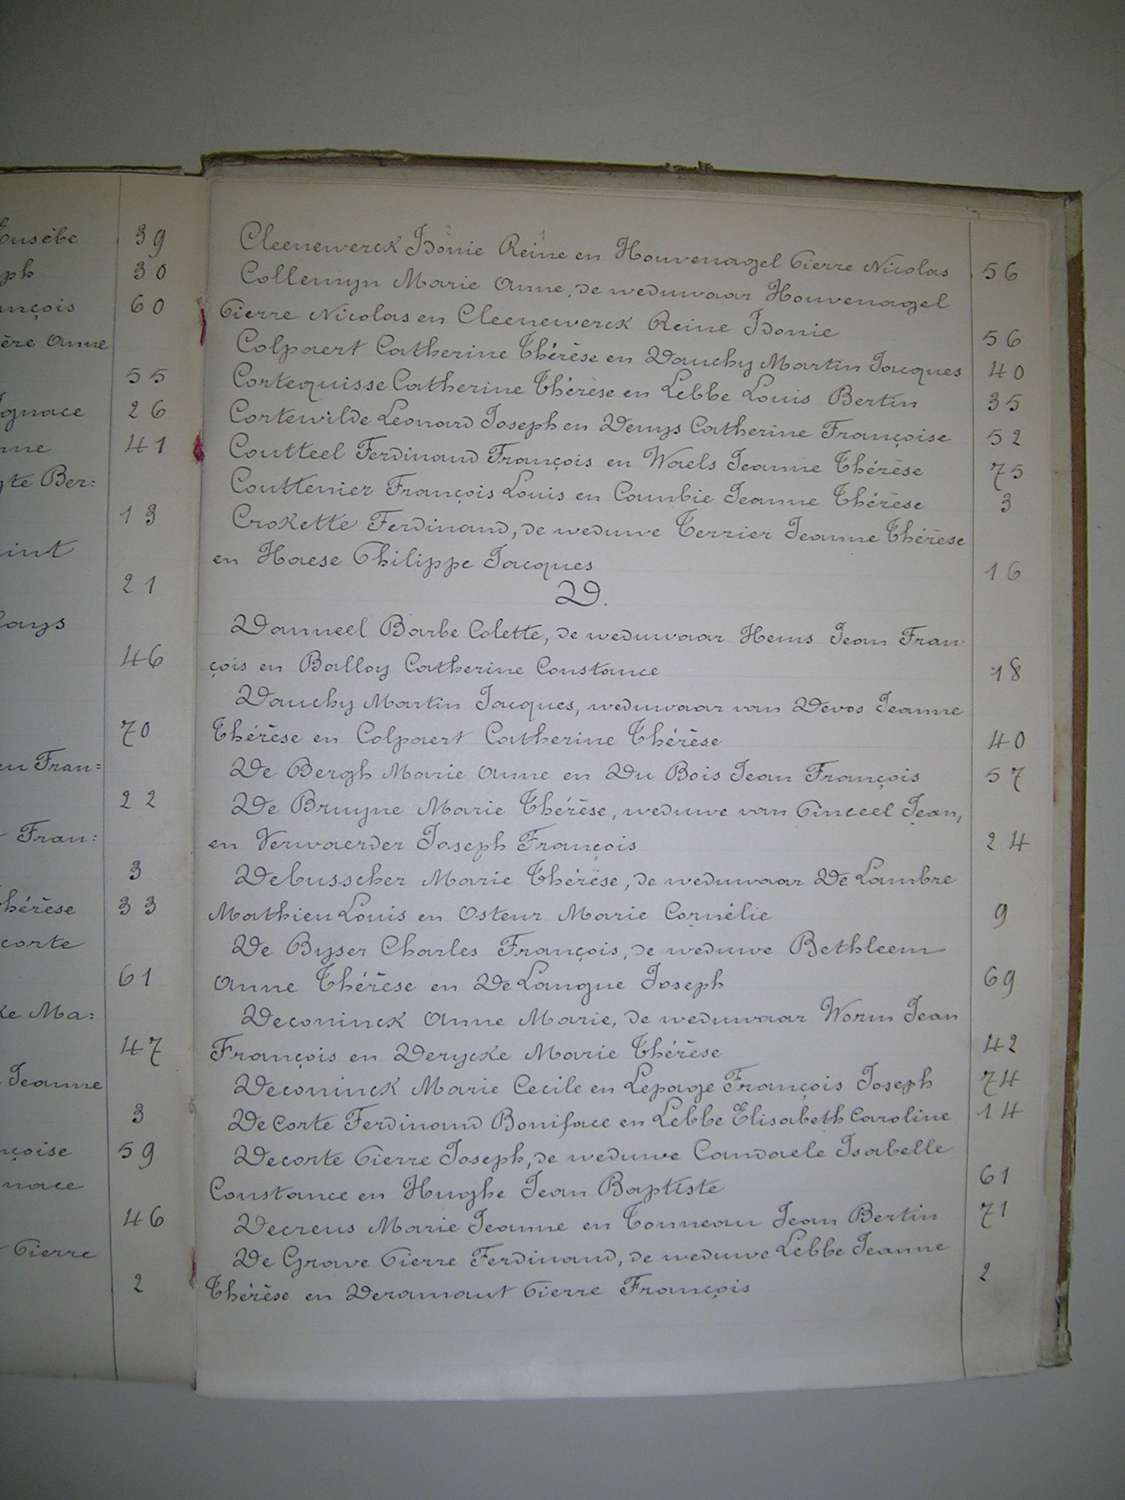 Eusèbe 39
ph 30
ançois 60
ère Anne
55
Ignace 26
nne 41
gte Ber:
13
int
21
lays
46
70
eu Fran=
22
Fran:
3
hérèse 33
corte
61
ke Ma:
47
Jeanne
3
nçoise 59
nace
46
Pierre
2
Cleenewerck Idonie Reine en Houvenagel Pierre Nicolas 56
Collemyn Marie Anne, de weduwaar Houvenagel
Pierre Nicolas en Cleenewerck Reine Idonie 56
Colpaert Catherine Thérèse en Dauchy Martin Jacques 40
Cortequisse Catherine Thérèse en Lebbe Louis Bertin 35
Cortewilde Léonard Joseph en Denys Catherine Françoise 52
Coutteel Ferdinand François en Waels Jeanne Thérèse 75
Couttenier François Louis en Cambie Jeanne Thérèse 3
Crokette Ferdinand, de weduwe Terrier Jeanne Thérèse
en Haese Philippe Jacques 16
D.
Danneel Barbe Colette, de weduwaar Hems Jean Fran-
çois en Balloy Catherine Constance 18
Dauchy Martin Jacques, weduwaar van Devos Jeanne
Thérèse en Colpaert Catherine Thérèse 40
De Bergh Marie Anne en Du Bois Jean François 57
De Bruyne Marie Thérèse, weduwe van Pinceel Jean,
en Verwaerder Joseph François 24
Debusscher Marie Thérèse, de weduwaar De Lambre
Mathieu Louis en Osteur Marie Cornélie 9
De Byser Charles François, de weduwe Bethleem
Anne Thérèse en De Langue Joseph 69
Deconinck Anne Marie, de weduwaar Worm Jean
François en Derycke Marie Thérèse 42
Deconinck Marie Cecile en Lepage François Joseph 74
De Corte Ferdinand Boniface en Lebbe Elisabeth Caroline 14
Decorte Pierre Joseph, de weduwe Candaele Isabelle
Constance en Hughe Jean Baptiste 61
Decreus Marie Jeanne en Tonneau Jean Bertin 71
De Grave Pierre Ferdinand, de weduwe Lebbe Jeanne
Thérèse en Deramaut Pierre François 2